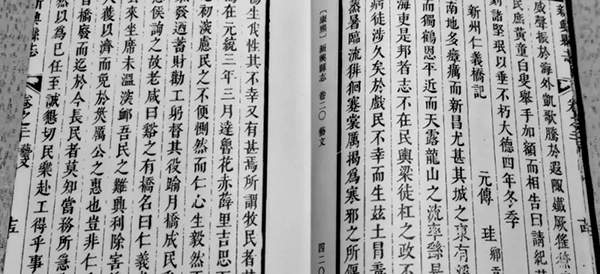 威聲振於海外凱歌騰於遐陬蠻厥
民庶黃童白叟舉手加額而相告曰請紀
刻諸堅珉以垂不朽大德四年冬季
新州仁義橋記 元傅 珪 鄉貢
南地多瘴癘而新昌尤甚其城之東有
而獨鶴恩平近而天露龍山之流率繇是
海吏是邦者志不在民輿梁徒杠之政不
病徒涉久矣於戲民不幸而生玆土冒毒
蒸暑臨流徘徊褰裳厲揭為寒邪之所
〔康熙〕新興縣志 卷二〇 藝文 四二〇
生我性其不幸又有甚焉所謂牧民者其
為在元統三年三月達魯花赤薛里吉思
之初湥慮民之不便惻然而仁心生毅然
發逋蓄財勸工躬督其役踰月橋成民
侯諭之故老咸曰谿之有橋名曰仁義
來坐席未溫湥卹吾民之難興利除害
獲以濟而免於災厲公之惠也豈非仁
橋廢而迄於今長民者莫知當務所急
然以為已任至誠懇切民樂赴工得乎事
縣志 卷之二十 藝文